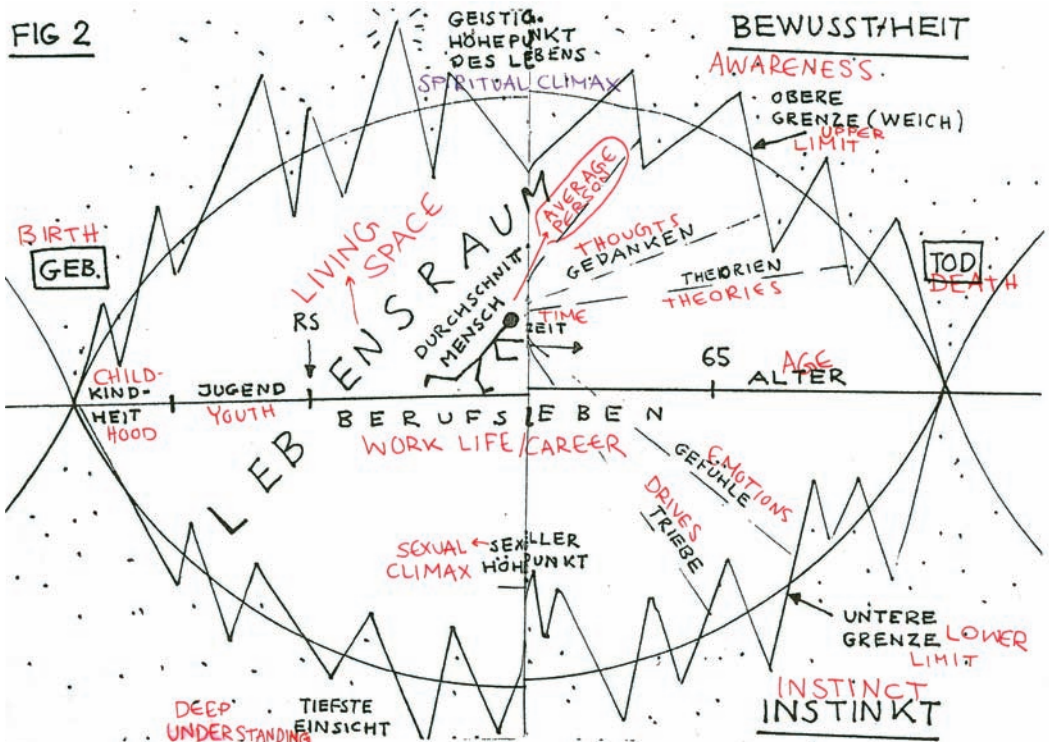 FIG 2
GEISTIG.
HÖHEPUNKT
DES LEBENS
SPIRITUAL CLIMAX
BEWUSSTHEIT
AWARENESS
OBERE
GRENZE (WEICH)
UPPER
LIMIT
BIRTH
GEB.
LIVING
SPACE
RS
LEBENSRAUM
DURCHSCHNITT
MENSCH
AVERAGE
PERSON
THOUGTS
GEDANKEN
THEORIEN
THEORIES
TIME
ZEIT
TOD
DEATH
CHILD-
KIND-
HEIT
HOOD
JUGEND
YOUTH
BERUFSLEBEN
WORK LIFE/CAREER
65
AGE
ALTER
EMOTIONS
GEFÜHLE
DRIVES
TRIEBE
SEXUAL
CLIMAX
SEXUELLER
HÖHPUNKT
UNTERE
GRENZE
LOWER
LIMIT
DEEP
UNDERSTANDING
TIEFSTE
EINSICHT
INSTINCT
INSTINKT